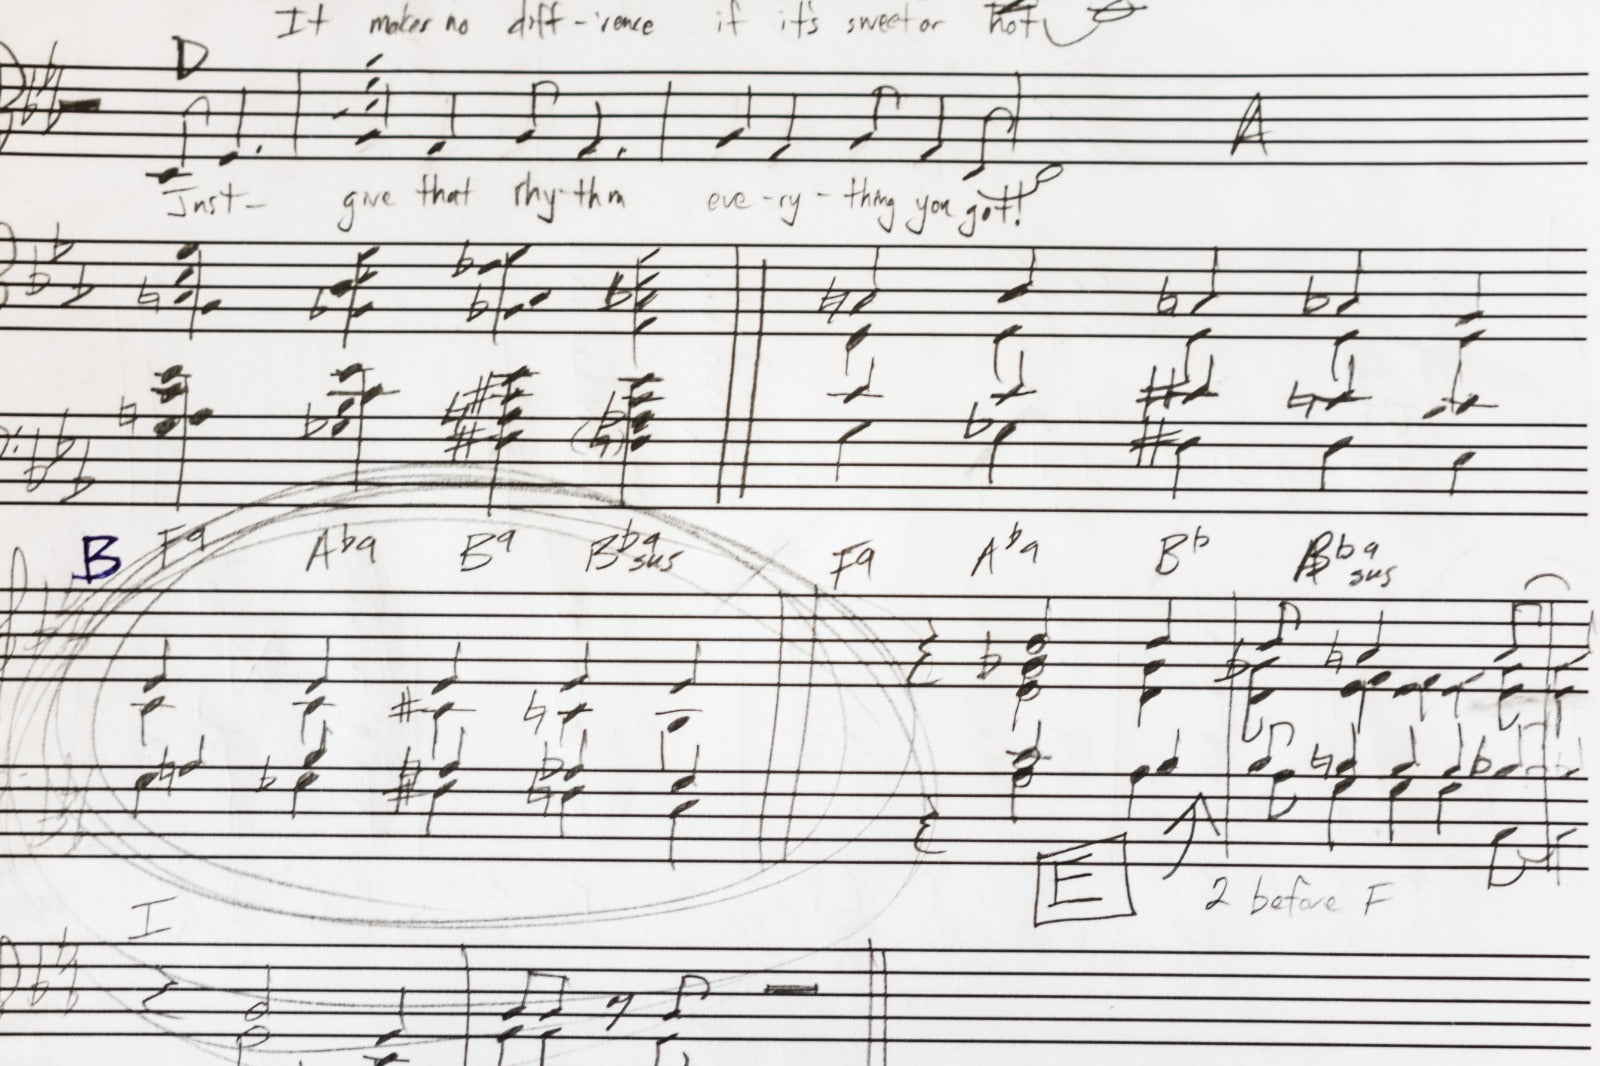 It makes no diff-'rence if it's sweet or hot
D
A
Just- give that rhy-thm eve-ry-thing you got!
B F9 A♭9 B9 B♭9sus F9 A♭9 B♭ B♭9sus
E
2 before F
I